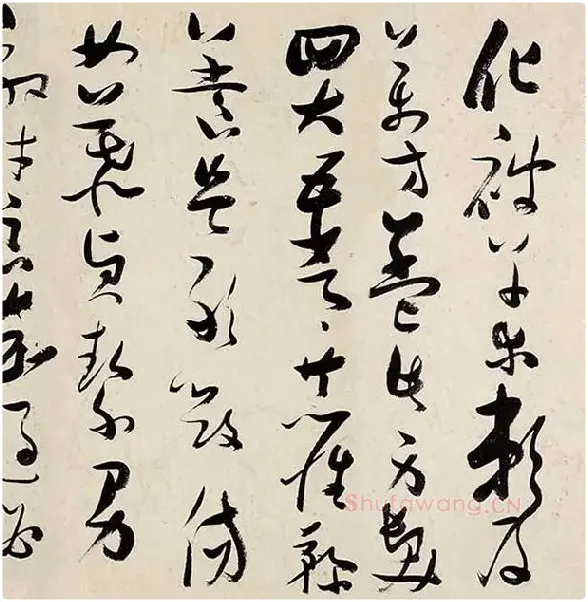 化被草木賴及
萬方蓋此身髮
四大五常恭惟鞠
養豈敢毀傷
女慕貞絜男
效才良知過必
Shufawang.CN